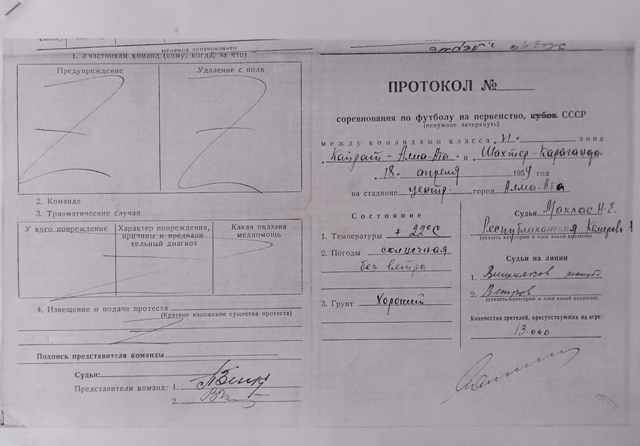 1. Участникам команд (кому, когда, за что)
Предупреждение
Удаление с поля
2. Команде
3. Травматические случаи
У кого повреждение
Характер повреждения, причины и предварительный диагноз
Какая оказана медпомощь
4. Извещение о подаче протеста
(Краткое изложение существа протеста)
Подпись представителя команды
Судьи:
Представители команд: 1.
2.
ПРОТОКОЛ №
соревнования по футболу на первенство, кубок СССР
(ненужное зачеркнуть)
между командами класса
зона
Кайрат - Алма-Ата и Шахтер - Караганда
18. апреля 1959 год
на стадионе центр. город Алма-Ата
Состояние
1. Температуры + 22°C
2. Погоды солнечная
без ветра
3. Грунт Хороший
Судья Маклас Н.Е.
Республиканская
Судьи на линии
1.
2. Ветров
Количество зрителей, присутствующих на игре
13.000